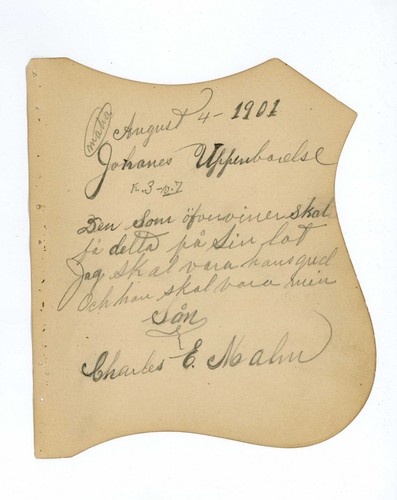 Omaha
August 4 - 1901
Johanes Uppenbarelse
K. 3 - v. 7
Den som öfverviner skal
få detta på sin lot
Jag skal vara hans gud
Och han skal vara min
Sån
Charles E. Malm